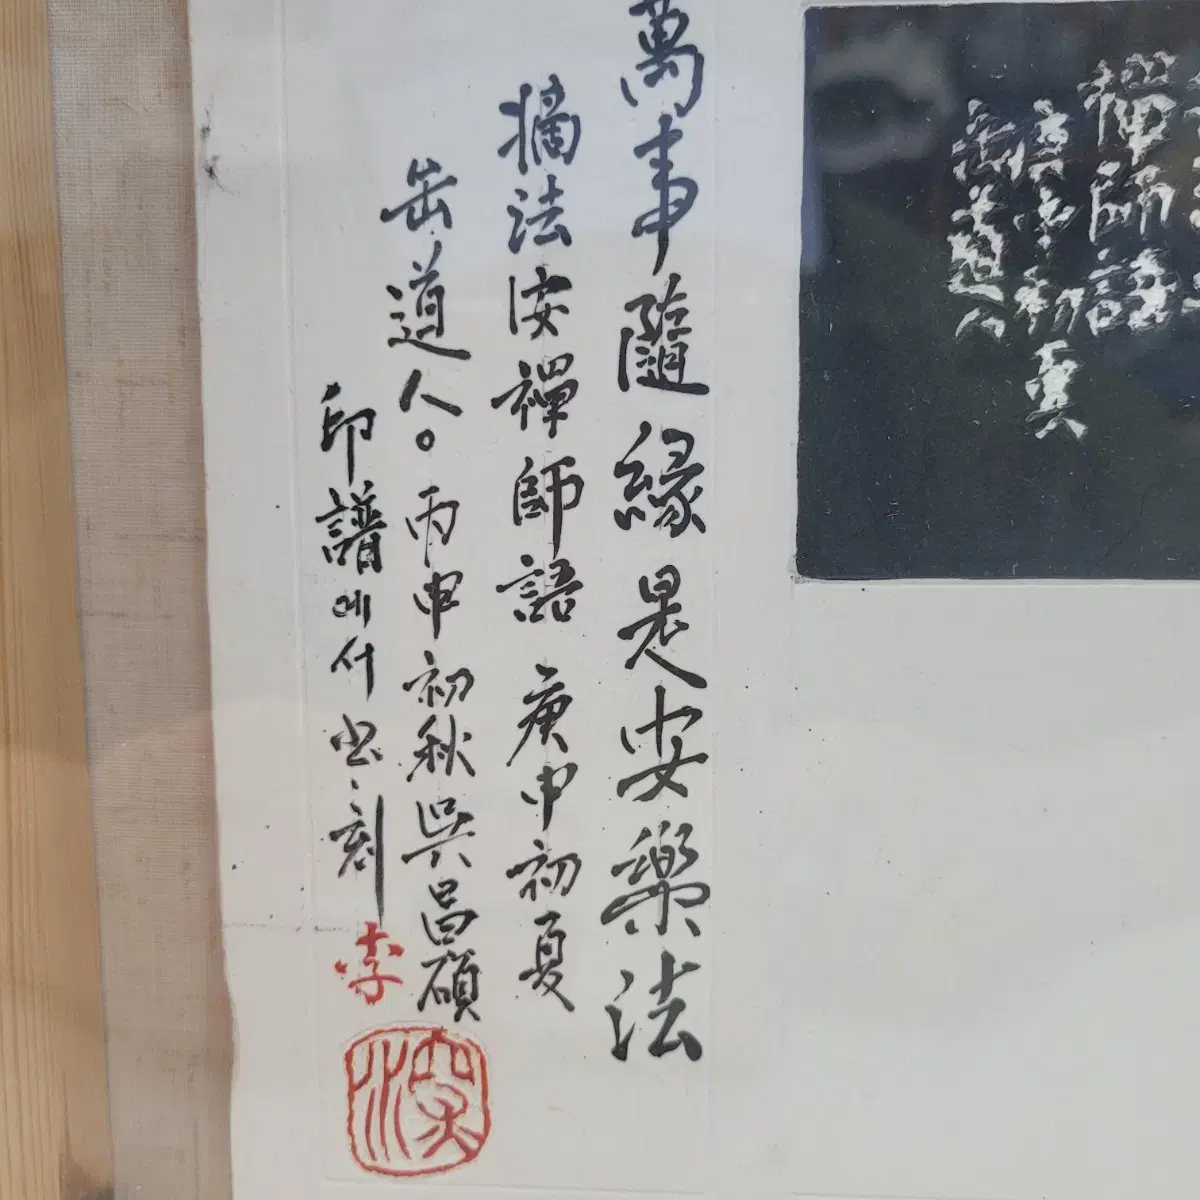 萬事隨緣是安樂法
摘法安禪師語 庚申初夏
缶道人。丙申初秋吳昌碩
印譜에서 書、刻
李
禪師語
庚申初夏
缶道人